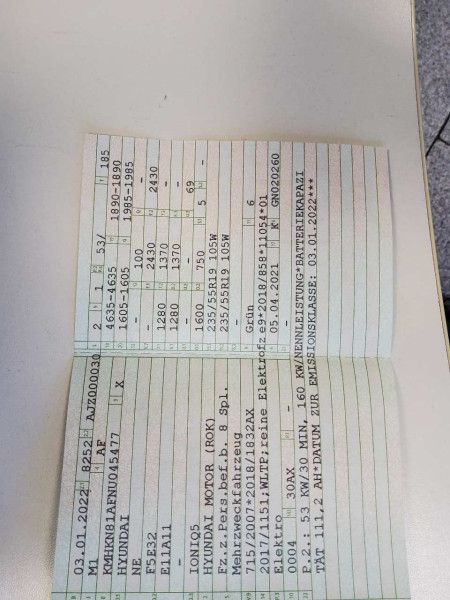 03.01.2022 8252 AJZ000030
M1 AF
KMHKN81AFNU045477
HYUNDAI X
NE
F5E32
E11A11
-
IONIQ5
HYUNDAI MOTOR (ROK)
Fz.z.Pers.bef.b. 8 Spl.
Mehrzweckfahrzeug
715/2007*2018/1832AX
2017/1151;WLTP;reine Elektrofz
Elektro
0004 30AX -
P.2.: 53 KW/30 MIN, 160 KW/NENNLEISTUNG*BATTERIEKAPAZI
TÄT 111,2 AH*DATUM ZUR EMISSIONSKLASSE: 03.01.2022***
2 1 53/ 185
4635-4635 1890-1890
1605-1605 1985-1985
- 100 -
- 2430 2430
1280 1370 -
1280 1370 -
- - 69
1600 750 5 -
235/55R19 105W
235/55R19 105W
-
Grün 6
e9*2018/858*11054*01
05.04.2021 K GN020260
-